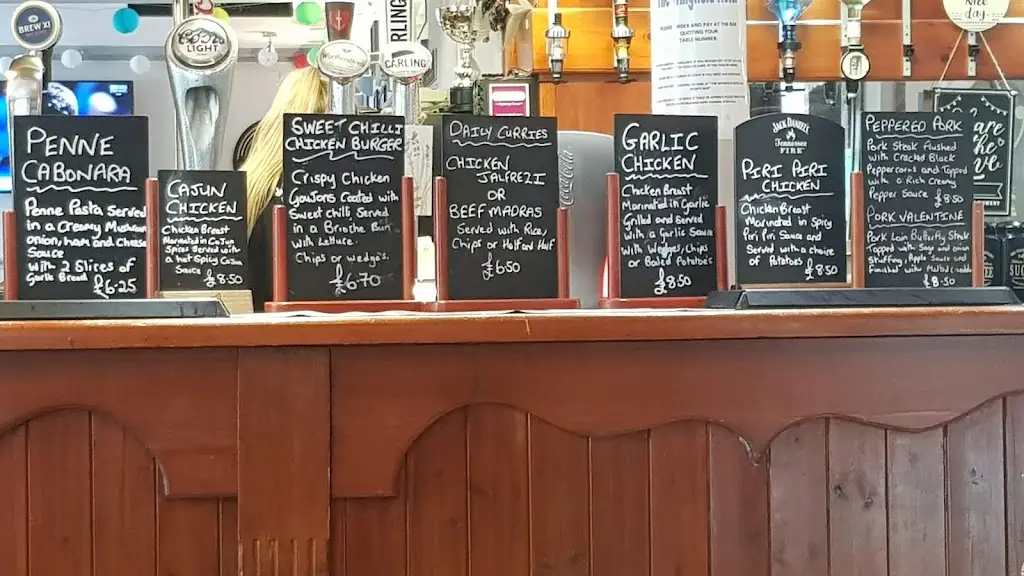 BREW XI
Coors
LIGHT
Worthington's
CARLING
ORDER AND PAY AT THE BAR
QUOTING YOUR
TABLE NUMBER.
Nice
day
PENNE
CABONARA
Penne Pasta Served
in a Creamy Mushroom
onion, ham and Cheese
Sauce
with 2 Slices of
Garlic Bread £6.25
CAJUN
CHICKEN
Chicken Breast
Marinated in Cajun
Spice Served with
a hot Spicy Cajun
Sauce £8.50
SWEET CHILLI
CHICKEN BURGER
Crispy Chicken
Goujons Coated with
Sweet chilli Served
in a Brioche Bun
with Lettuce.
Chips or wedge's.
£6.70
DAILY CURRIES
CHICKEN
JALFREZI
OR
BEEF MADRAS
Served with Rice,
Chips or Half and Half
£6.50
Coca-Cola
GARLIC
CHICKEN
Chicken Breast
Marinated in Garlic
Grilled and Served
with a Garlic Sauce
with Wedges, chips
or Baked Potatoe's
£8.50
JACK DANIEL'S
Tennessee
FIRE
PIRI PIRI
CHICKEN
Chicken Breast
Marinated in Spicy
Piri Piri Sauce and
Served with a choice
of Potatoes £8.50
PEPPERED PORK
Pork Steak flushed
with Cracked Black
Peppercorns and Topped
with a Rich Creamy
Pepper Sauce £8.50
PORK VALENTINE
Pork Loin Butterfly Steak
Topped with Sage and onion
Stuffing, Apple Sauce and
Finished with Melted Cheddar
£8.50
are